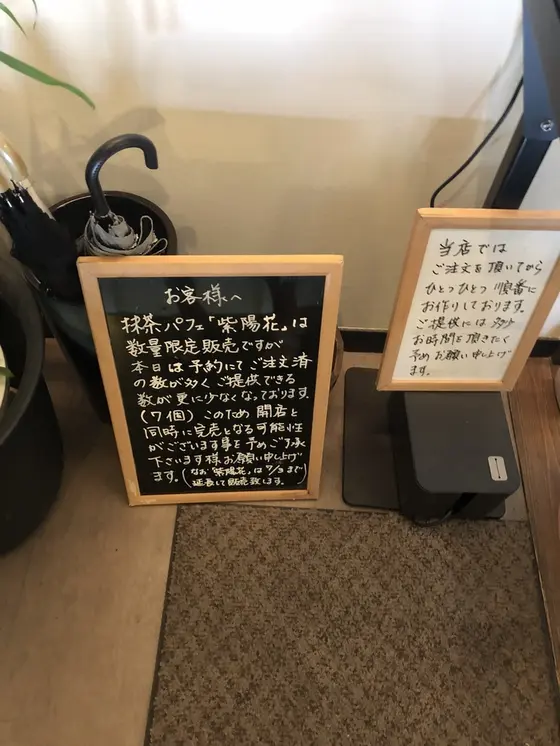 お客様へ
抹茶パフェ「紫陽花」は
数量限定販売ですが
本日は予約にてご注文済
の数が多くご提供できる
数が更に少なくなっております。
(7個)このため開店と
同時に完売となる可能性
がございます事を予めご了承
下さいます様お願い申し上げ
ます。(なお「紫陽花」は7/3まで
延長して販売致します。)
当店では
ご注文を頂いてから
ひとつひとつ順番に
お作りしております。
ご提供には多少
お時間を頂きたく
予めお願い申し上げ
ます。